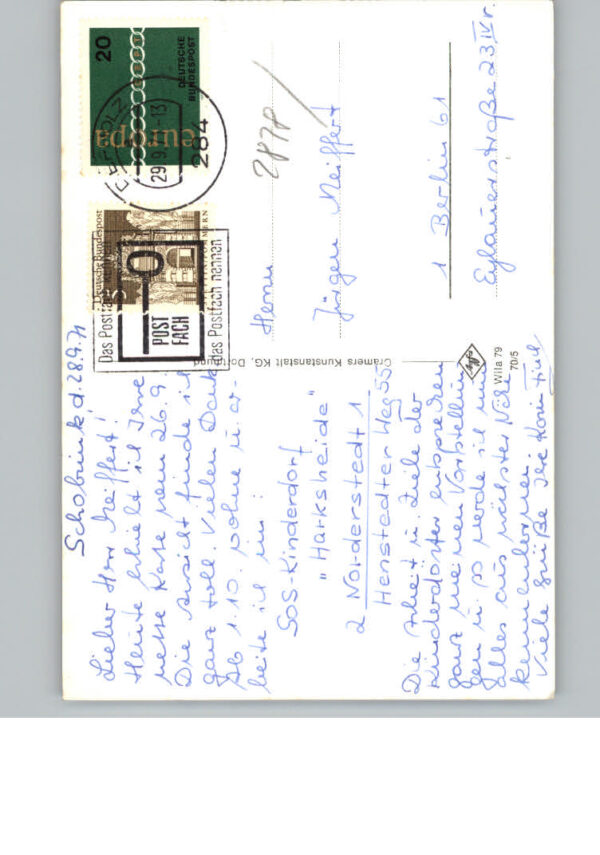 Schobrink d. 28.9.71
Lieber Herr Meiffert!
Heute erhielt ich Ihre
nette Karte vom 26.9.
Die Ansicht finde ich
ganz toll. Vielen Dank
Ab 1.10. wohne u. ar-
beite ich im:
SOS-Kinderdorf
"Harksheide"
2 Norderstedt 1
Henstedter Weg 55
Die Arbeit u. Ziele der
Kinderdörfer entsprechen
ganz meinen Vorstellun-
gen u. so werde ich nun
alles aus nächster Nähe
kennenlernen.
Viele Grüße Ihre Karin
Cramers Kunstanstalt KG, Dortmund
Agfa
Wila 79
70/5
20
europa
DEUTSCHE
BUNDESPOST
Deutsche Bundespost
5
284
29.9.71-13
Das Postfach
POST
FACH
das Postfach nennen
2878
Herrn
Jürgen Meiffert
1 Berlin 61
Eylauerstraße 23 IV r.